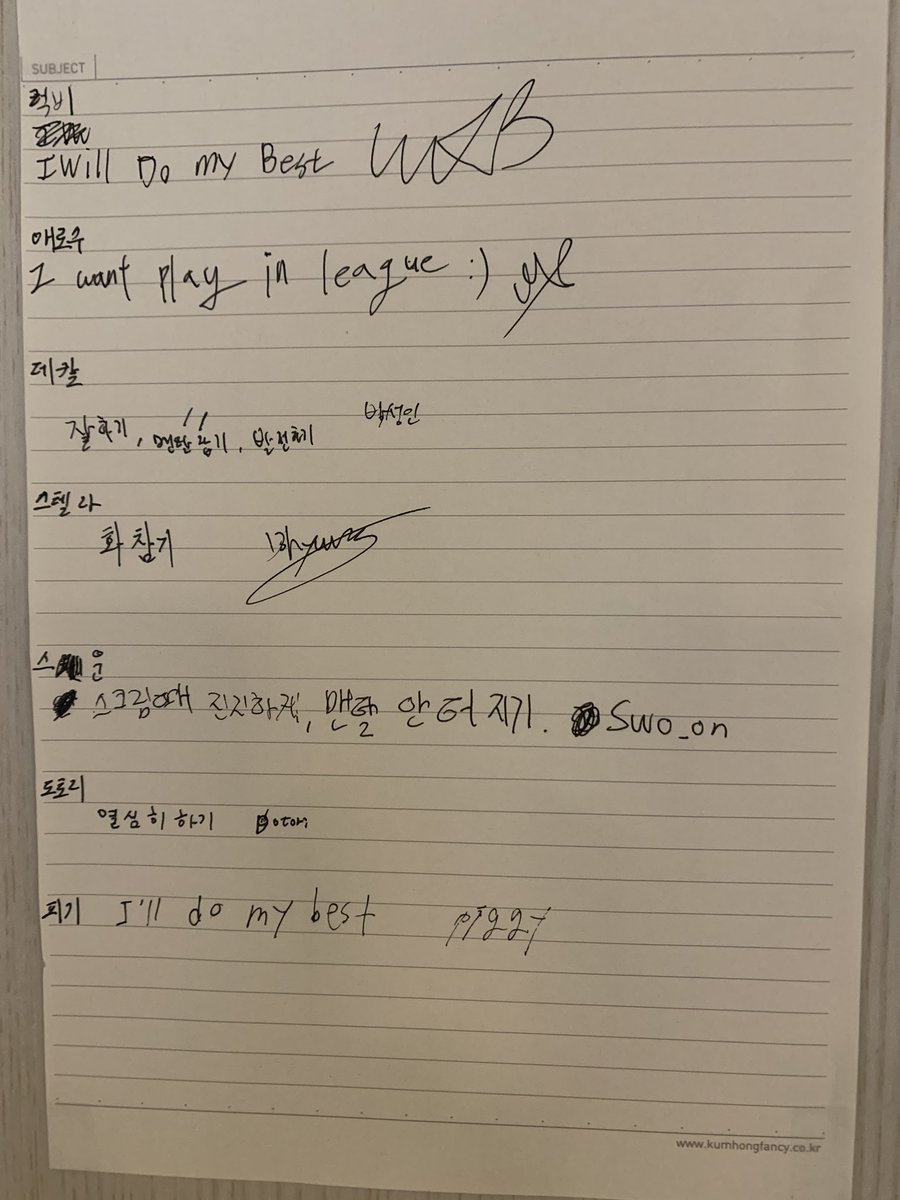 SUBJECT
럭비
I Will Do my Best
애로우
I want play in league :)
데칼
잘하기, 멘탈잡기, 발전하기 박성인
스텔라
화 참기
스운
스크림때 진지하게, 맨탈 안 터지기. Swo_on
도토리
열심히하기
피기 I'll do my best piggy
www.kumhongfancy.co.kr